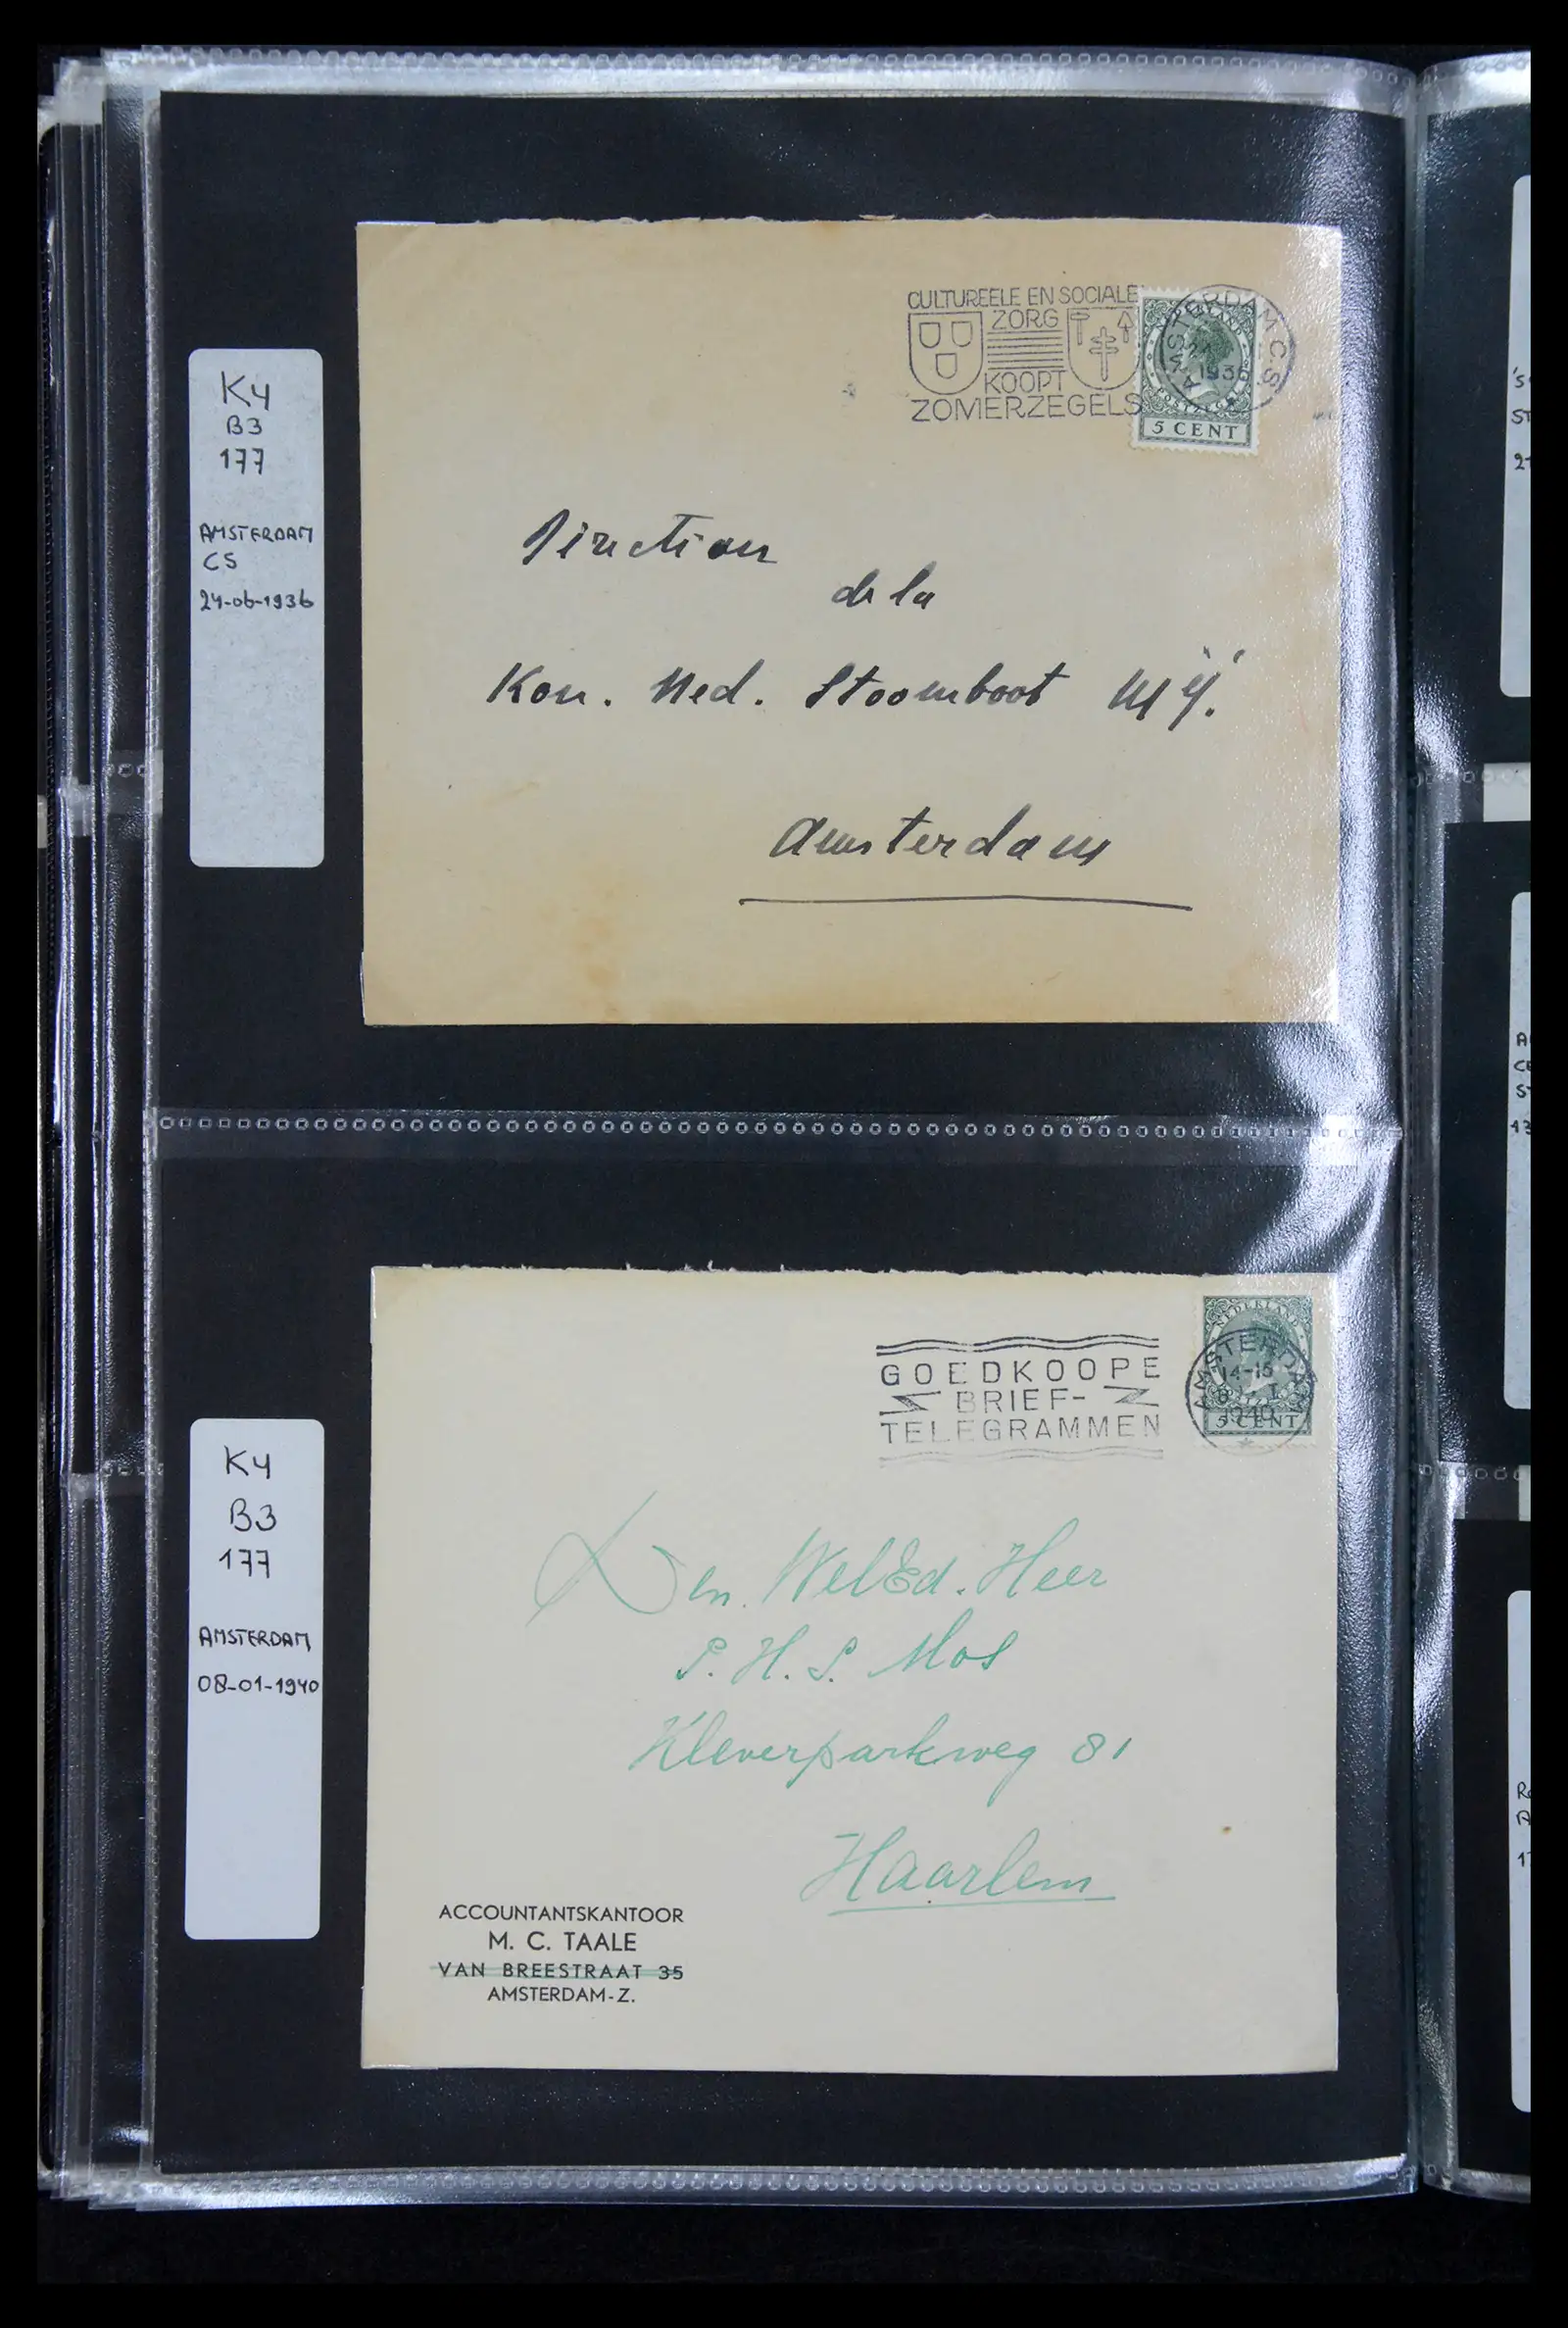 K4
B3
177
AMSTERDAM
CS
24-06-1936
CULTUREELE EN SOCIALE
ZORG
KOOPT
ZOMERZEGELS
AMSTERDAM C.S.
1936
NEDERLAND
POSTZEGEL
5 CENT
Direction
de la
Kon. Ned. Stoomboot Mÿ.
Amsterdam
K4
B3
177
AMSTERDAM
08-01-1940
GOEDKOOPE
BRIEF-
TELEGRAMMEN
NEDERLAND
AMSTERDAM
14-15
8 I
1940
5 CENT
Den WelEd. Heer
P. H. S. Mos
Kleverparkweg 81
Haarlem
ACCOUNTANTSKANTOOR
M. C. TAALE
VAN BREESTRAAT 35
AMSTERDAM-Z.